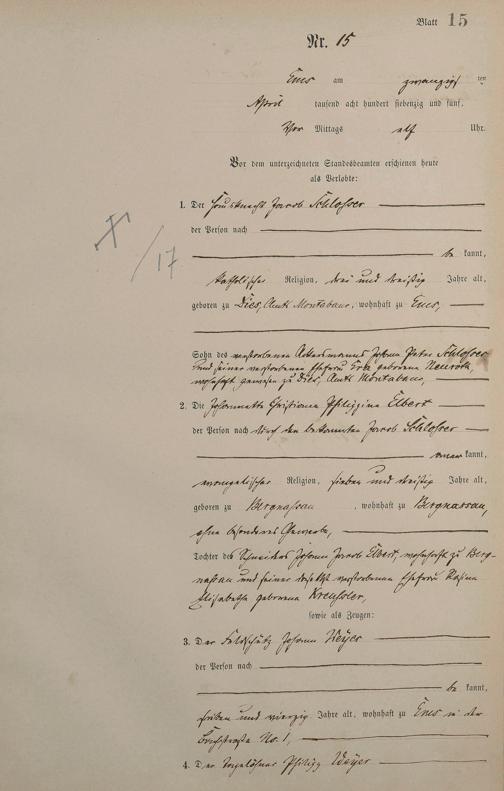 Blatt 15
Nr. 15
Ems am zwanzigsten
April tausend acht hundert siebenzig und fünf.
Vor Mittags elf Uhr.
Vor dem unterzeichneten Standesbeamten erschienen heute
als Verlobte:
1. Der Hausknecht Jacob Schlosser
der Person nach
be kannt,
katholischer Religion, drei und dreißig Jahre alt,
geboren zu Dies, Amts Montabaur, wohnhaft zu Ems,
Sohn des verstorbenen Ackersmanns Johann Peter Schlosser
und seiner verstorbenen Ehefrau Eva geborene Neuroth,
wohnhaft gewesen zu Dies, Amts Montabaur,
2. Die Johannette Christiane Philippine Elbert
der Person nach durch den bekannten Jacob Schlosser
kannt,
evangelischer Religion, sieben und dreißig Jahre alt,
geboren zu Bergnassau, wohnhaft zu Bergnassau,
ohne besonderes Gewerbe,
Tochter des Schneiders Johann Jacob Elbert, wohnhaft zu Berg-
nassau und seiner daselbst verstorbenen Ehefrau
Elisabetha geborene Kreussler,
sowie als Zeugen:
3. Der Feldschütz Johann Weyer
der Person nach
be kannt,
sieben und vierzig Jahre alt, wohnhaft zu Ems in der
No. 1,
4. Der Tagelöhner Philipp Weyer
17